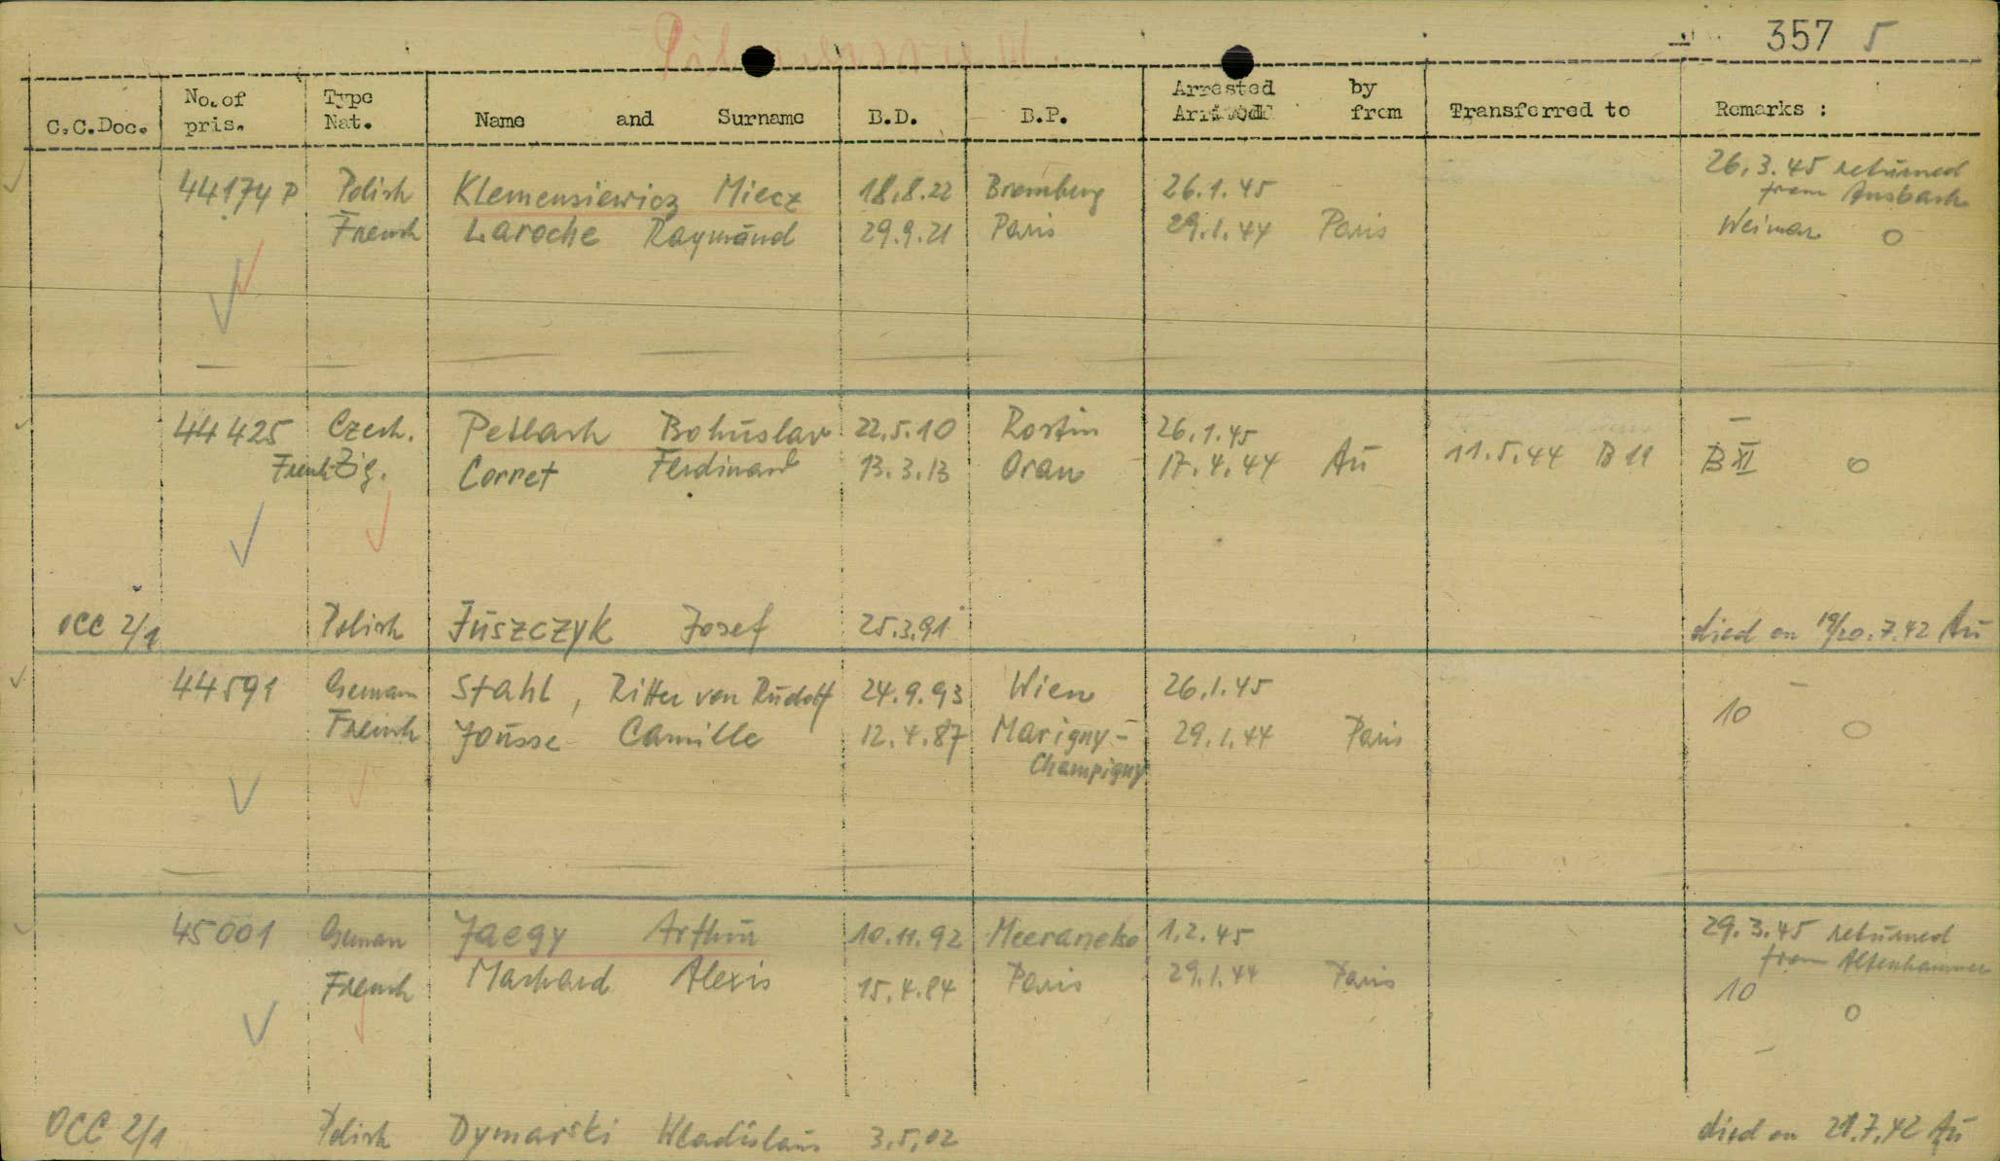 357 5
C.C.Doc. No. of pris. Type Nat. Name and Surname B.D. B.P. Arrested by Arrived from Transferred to Remarks :
44174 P Polish Klemensiewicz Miecz 18.8.22 Bromberg 26.1.45 26.3.45 returned
from Ansbach
French Laroche Raymund 29.9.21 Paris 29.1.44 Paris Weimar O
44425 Czech. Bohuslav 22.5.10 Rostin 26.1.45 –
French Zig. Corret Ferdinand 13.3.13 Oran 17.4.44 Au 11.5.44 B 11 B XI O
OCC 2/1 Polish Juszczyk Josef 25.3.91 died on 19/20.7.42 Au
44591 German Stahl, Ritter von Rudolf 24.9.93 Wien 26.1.45 –
French Jousse Camille 12.4.87 Marigny- 29.1.44 Paris 10 O
Champigny
45001 German Jaegy Arthur 10.11.92 1.2.45 29.3.45 returned
from
French Machard Alexis 15.4.84 Paris 29.1.44 Paris 10 O
OCC 2/1 Polish Dymarski Wladislaus 3.5.02 died on 21.7.42 Au